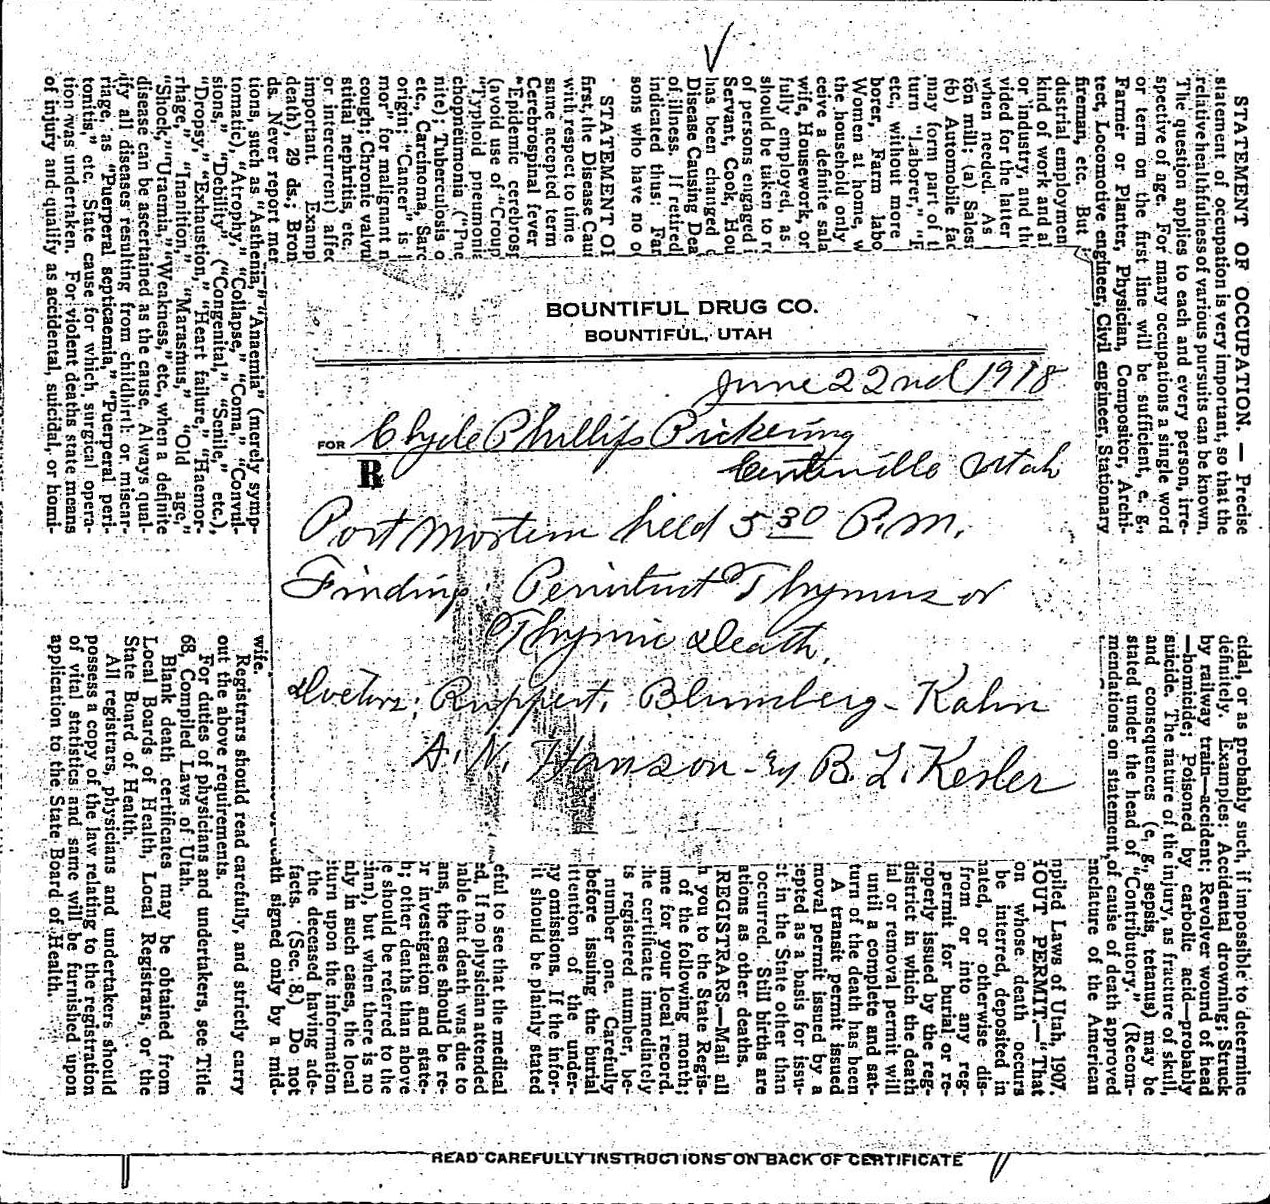 BOUNTIFUL DRUG CO.
BOUNTIFUL, UTAH
June 22nd 1918
FOR Clyde Phillips Pickering
Centerville Utah
℞
Post Mortem held 5 30 P.M.
Finding: Persistent Thymus or
Thymic Death.
Doctors; Ruppert. Blumberg - Kahn
A. N. Hanson - By B. L. Kesler
STATEMENT OF OCCUPATION. — Precise
statement of occupation is very important, so that the
relative healthfulness of various pursuits can be known.
The question applies to each and every person, irre-
spective of age. For many occupations a single word
or term on the first line will be sufficient, e. g.,
Farmer or Planter, Physician, Compositor, Archi-
tect, Locomotive engineer, Civil engineer, Stationary
fireman, etc. But
dustrial employmen
kind of work and al
or industry, and th
vided for the latter
when needed. As
ton mill; (a) Sales
(b) Automobile fac
may form part of t
turn "Laborer," "F
etc., without more
borer, Farm labo
Women at home, w
the household only
ceive a definite sala
wife, Housework, or
fully employed, as
should be taken to r
of persons engaged i
Servant, Cook, Hou
has been changed
Disease Causing Dea
of illness. If retired
indicated thus: Far
sons who have no o
STATEMENT OF
first, the Disease Cau
with respect to time
same accepted term
Cerebrospinal fever
"Epidemic cerebros
(avoid use of "Croup
"Typhoid pneumoni
chopneumonia ("Pne
nite); Tuberculosis o
etc., Carcinoma, Sarc
origin; "Cancer" is l
mor" for malignant n
cough; Chronic valvu
stitial nephritis, etc.
or intercurrent) affec
important. Examp
death), 29 ds.; Bron
ds. Never report mer
tions, such as "Asthenia," "Anaemia" (merely symp-
tomatic), "Atrophy," "Collapse," "Coma," "Convul-
sions," "Debility" ("Congenital," "Senile," etc.),
"Dropsy," "Exhaustion," "Heart failure," "Haemor-
rhage," "Inanition," "Marasmus," "Old age,"
"Shock," "Uraemia," "Weakness," etc., when a definite
disease can be ascertained as the cause. Always qual-
ify all diseases resulting from childbirth or miscar-
riage, as "Puerperal septicaemia," "Puerperal peri-
tonitis," etc. State cause for which surgical opera-
tion was undertaken. For violent deaths state means
of injury and qualify as accidental, suicidal, or homi-
cidal, or as probably such, if impossible to determine
definitely. Examples: Accidental drowning; Struck
by railway train—accident; Revolver wound of head
—homicide; Poisoned by carbolic acid—probably
suicide. The nature of the injury, as fracture of skull,
and consequences (e. g., sepsis, tetanus) may be
stated under the head of "Contributory." (Recom-
mendations on statement of cause of death approved
nclature of the American
mpiled Laws of Utah, 1907.
HOUT PERMIT.—"That
on whose death occurs
be interred, deposited in
nated, or otherwise dis-
from or into any reg-
permit for burial or re-
roperly issued by the reg-
district in which the death
ial or removal permit will
until a complete and sat-
turn of the death has been
A transit permit issued
moval permit issued by a
cepted as a basis for issu-
ct in the State other than
occurred. Still births are
ations as other deaths.
REGISTRARS.—Mail all
h you to the State Regis-
of the following month;
ume for your local record.
the certificate immediately
ts registered number, be-
number one. Carefully
before issuing the burial
attention of the under-
ny omissions. If the infor-
it should be plainly stated
eful to see that the medical
ed. If no physician attended
nable that death was due to
ans, the case should be re-
or investigation and state-
h; other deaths than above
e should be referred to the
cian), but when there is no
nly in such cases, the local
turn upon the information
the deceased having ade-
facts. (Sec. 8.) Do not
death signed only by a mid-
wife.
Registrars should read carefully, and strictly carry
out the above requirements.
For duties of physicians and undertakers, see Title
68, Compiled Laws of Utah.
Blank death certificates may be obtained from
Local Boards of Health, Local Registrars, or the
State Board of Health.
All registrars, physicians and undertakers should
possess a copy of the law relating to the registration
of vital statistics and same will be furnished upon
application to the State Board of Health.
READ CAREFULLY INSTRUCTIONS ON BACK OF CERTIFICATE